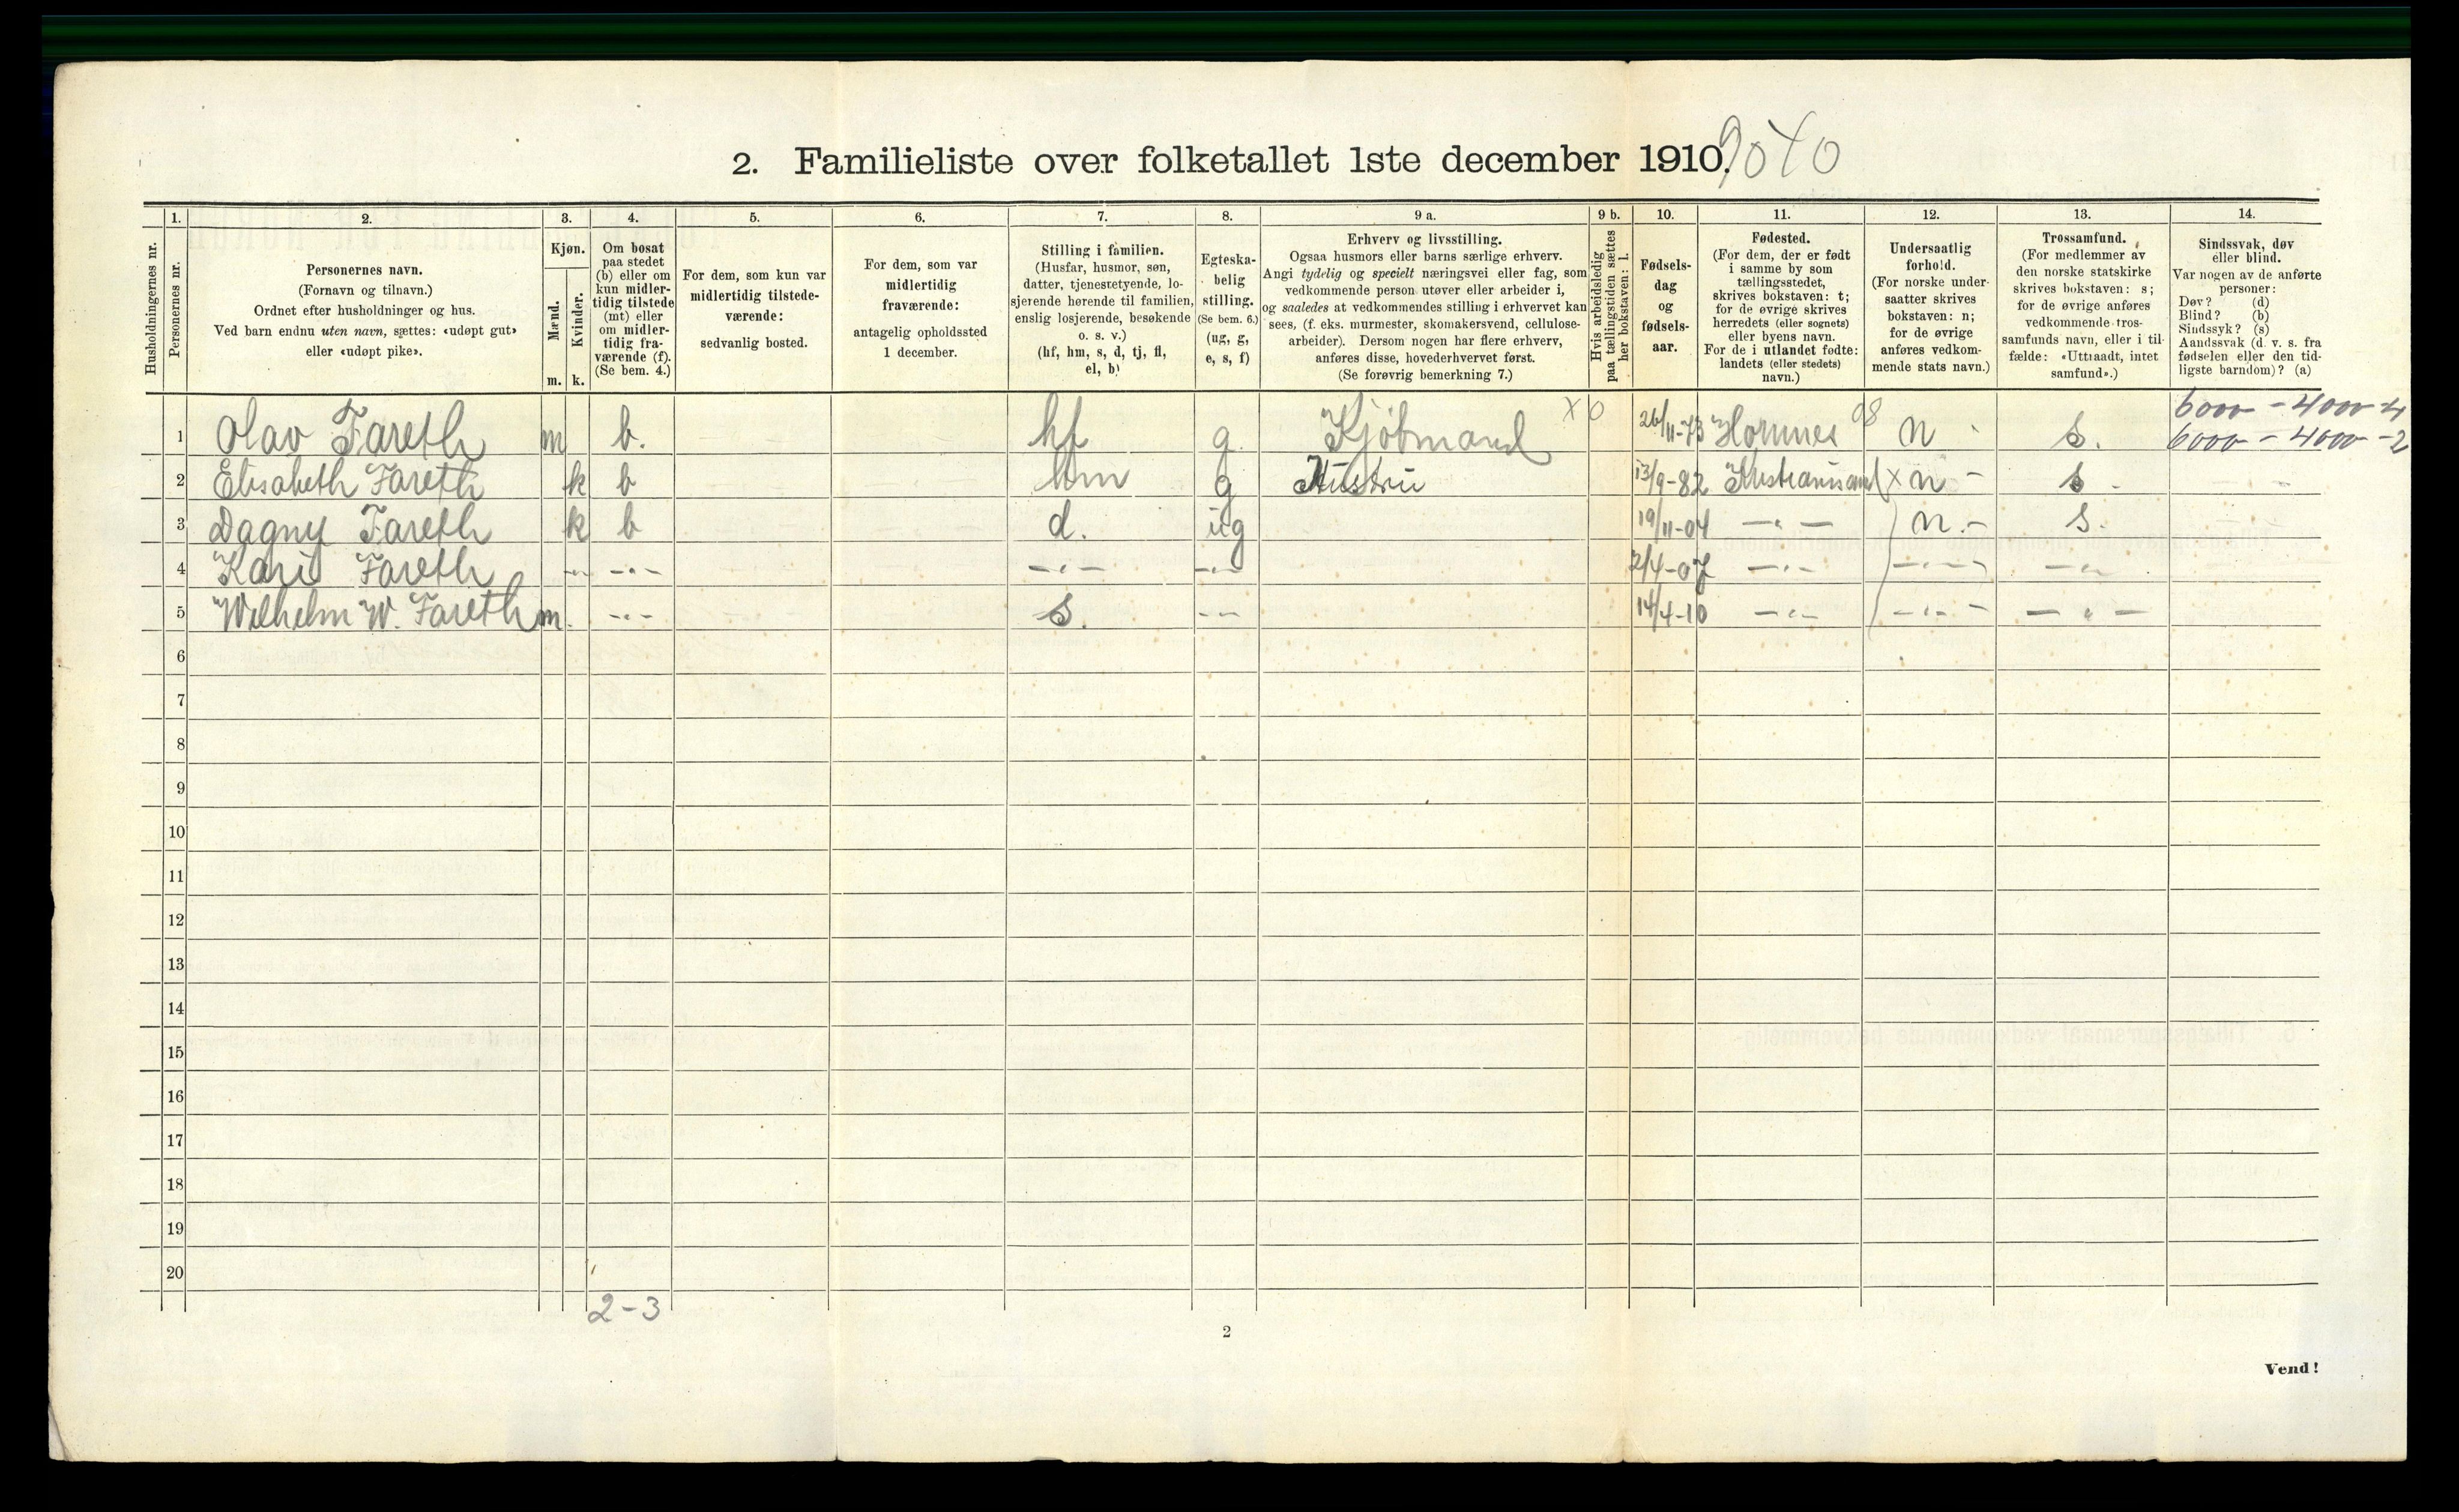 2. Familieliste over folketallet 1ste december 1910. 9040
1. 2. 3. 4. 5. 6. 7. 8. 9 a. 9 b. 10. 11. 12. 13. 14.
Husholdningernes nr.
Personernes nr.
Personernes navn.
(Fornavn og tilnavn.)
Ordnet efter husholdninger og hus.
Ved barn endnu uten navn, sættes: «udøpt gut»
eller «udøpt pike».
Kjøn.
Mænd.
Kvinder.
m. k.
Om bosat
paa stedet
(b) eller om
kun midler-
tidig tilstede
(mt) eller
om midler-
tidig fra-
værende (f).
(Se bem. 4.)
For dem, som kun var
midlertidig tilstede-
værende:
sedvanlig bosted.
For dem, som var
midlertidig
fraværende:
antagelig opholdssted
1 december.
Stilling i familien.
(Husfar, husmor, søn,
datter, tjenestetyende, lo-
sjerende hørende til familien,
enslig losjerende, besøkende
o. s. v.)
(hf, hm, s, d, tj, fl,
el, b)
Egteska-
belig
stilling.
(Se bem. 6.)
(ug, g,
e, s, f)
Erhverv og livsstilling.
Ogsaa husmors eller barns særlige erhverv.
Angi tydelig og specielt næringsvei eller fag, som
vedkommende person utøver eller arbeider i,
og saaledes at vedkommendes stilling i erhvervet kan
sees, (f. eks. murmester, skomakersvend, cellulose-
arbeider). Dersom nogen har flere erhverv,
anføres disse, hovederhvervet først.
(Se forøvrig bemerkning 7.)
Hvis arbeidsledig
paa tællingstiden sættes
her bokstaven: l.
Fødsels-
dag
og
fødsels-
aar.
Fødested.
(For dem, der er født
i samme by som
tællingsstedet,
skrives bokstaven: t;
for de øvrige skrives
herredets (eller sognets)
eller byens navn.
For de i utlandet fødte:
landets (eller stedets)
navn.)
Undersaatlig
forhold.
(For norske under-
saatter skrives
bokstaven: n;
for de øvrige
anføres vedkom-
mende stats navn.)
Trossamfund.
(For medlemmer av
den norske statskirke
skrives bokstaven: s;
for de øvrige anføres
vedkommende tros-
samfunds navn, eller i til-
fælde: «Uttraadt, intet
samfund».)
Sindssvak, døv
eller blind.
Var nogen av de anførte
personer:
Døv? (d)
Blind? (b)
Sindssyk? (s)
Aandssvak (d. v. s. fra
fødselen eller den tid-
ligste barndom)? (a)
6000 - 4000 - 4
1 Olav Fareth m b. hf g. Kjøbmand X 0 26/11-73 Hornnes 98 n s. 6000 - 4000 - 2
2 Elisabeth Fareth k b hm g Hustru 13/9-82 Khristianssand x n - s -
3 Dagny Fareth k b d. ug 19/11-04 —„— n.- s.
4 Kari Fareth -„- -„- -„- -„- 2/4-07 -„- -„- -„-
5 Wilhelm W. Fareth m. -„- s. -„- 14/4-10 -„- -„- -„-
6
7
8
9
10
11
12
13
14
15
16
17
18
19
20
2-3
2
Vend!